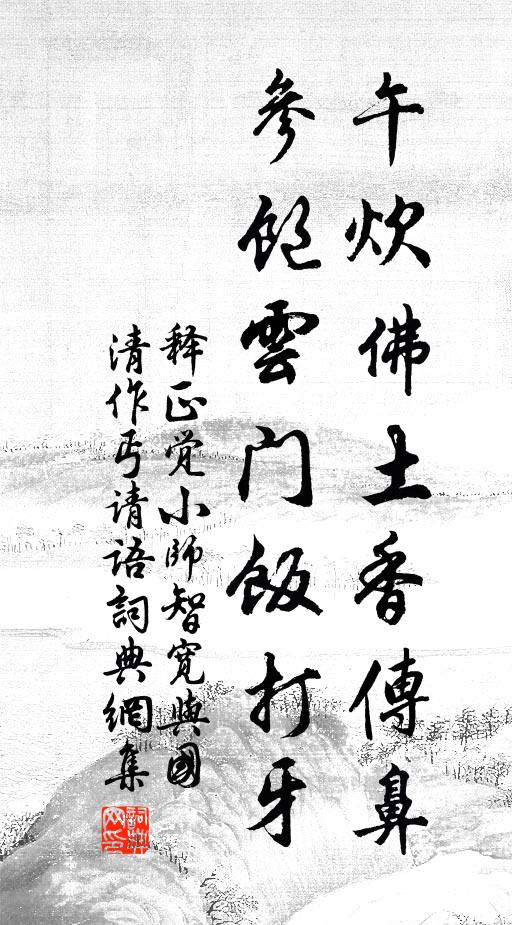 午炊佛土香傳鼻
參飽雲门飯打牙
释正觉小師智寬與國
清作丐请語詞典網集